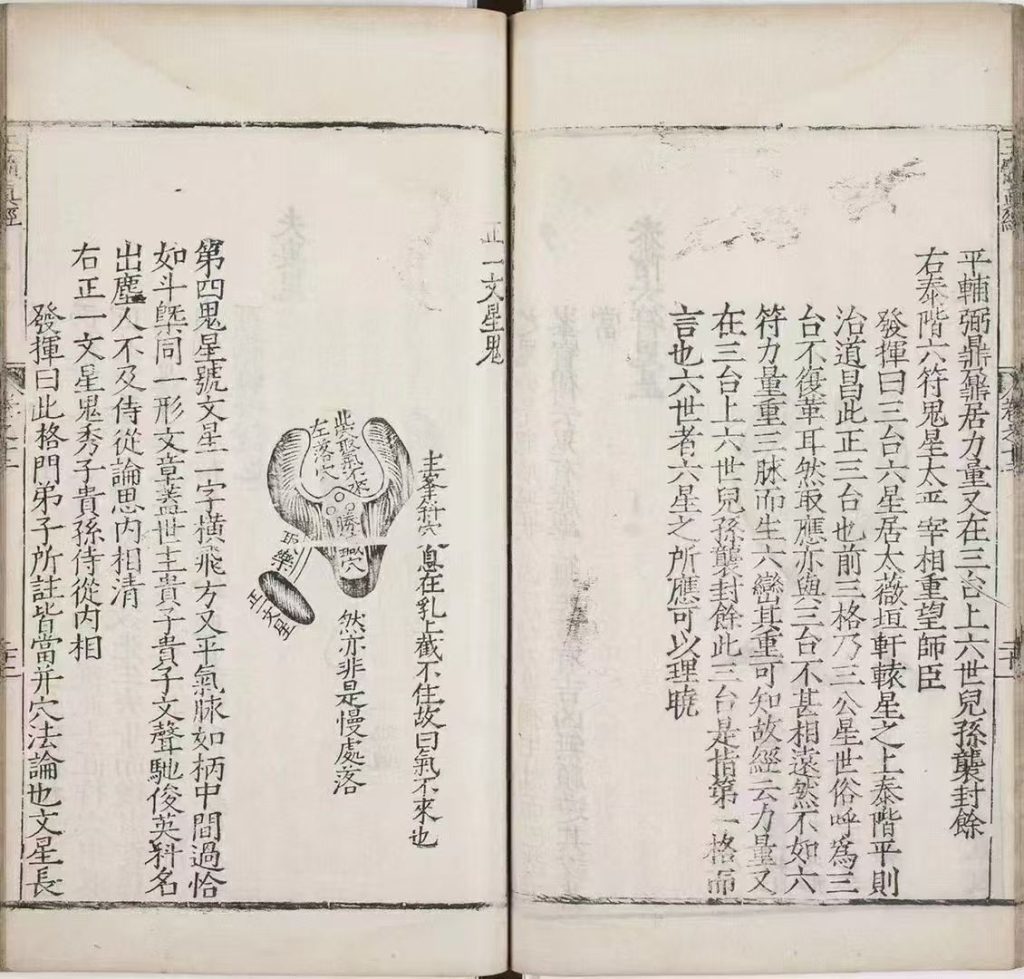 平輔弼鼎鼐居力量又在三台上六世兒孫襲封餘
右泰階六符鬼星太平宰相重望師臣
發揮曰三台六星居太薇垣軒轅星之上泰階平則
治道昌此正三台也前三格乃三公星世俗呼爲三
台不復革耳然取應亦與三台不甚相遠然不如六
符力量重三脉而生六巒其重可知故經云力量又
在三台上六世兒孫襲封餘此三台是指第一格而
言也六世者六星之所應可以理曉
正一文星鬼
息在乳上截不住故曰氣不來也
然亦非是慢處落
此聚氣不來
左落穴
正文星
第四鬼星號文星一字橫飛方又平氣脉如柄中間過恰
如斗槩同一形文章蓋世主貴子貴子文聲馳俊英科名
出塵人不及侍從論思内相清
右正一文星鬼秀子貴孫侍從内相
發揮曰此格門弟子所註皆當并穴法論也文星長